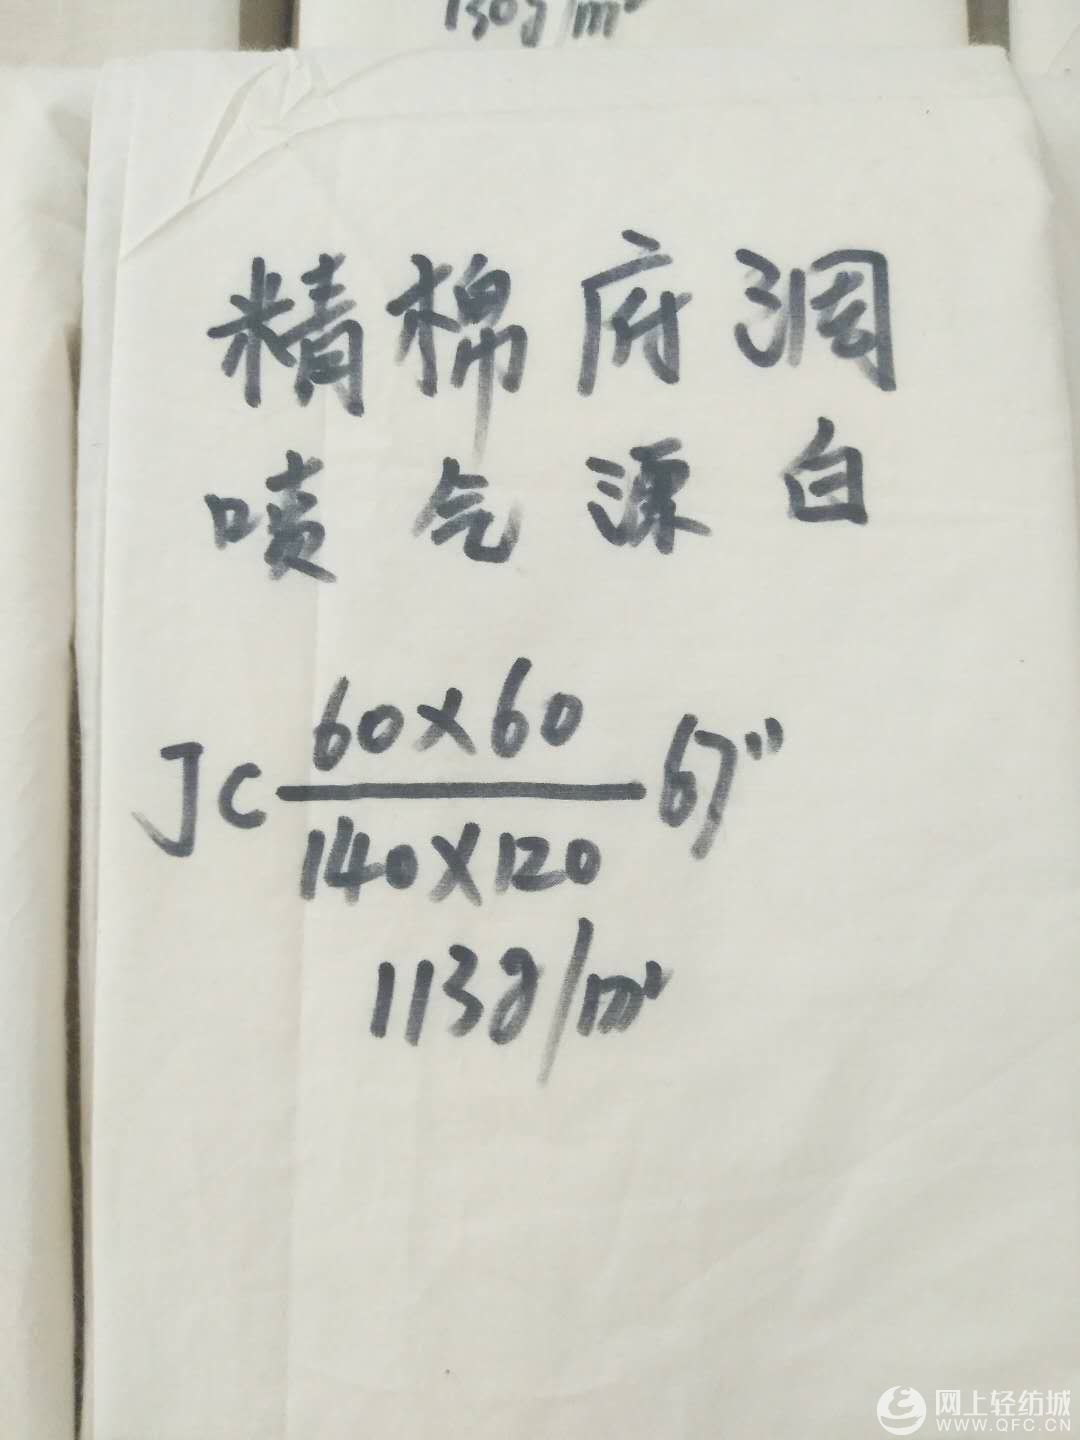 130g/m²
精棉府调
喷气漂白
JC 60×60 67"
140×120
113g/m²
网上轻纺城
WWW.QFC.CN